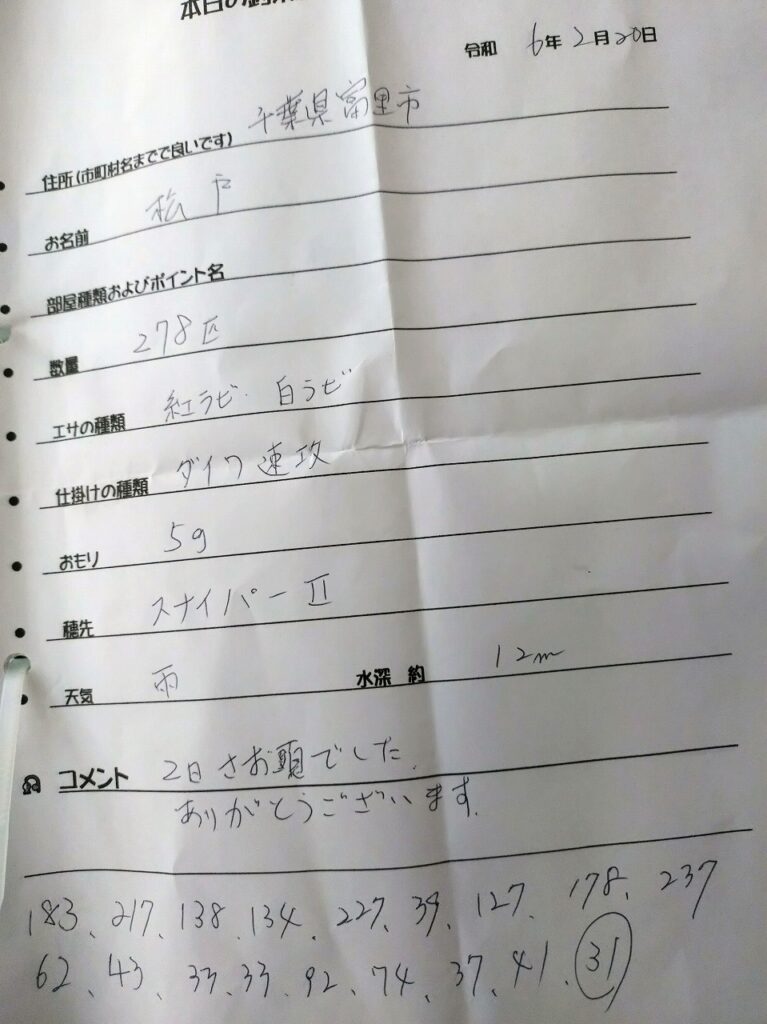 本日の釣果
令和 6年2月20日
住所(市町村名までで良いです) 千葉県富里市
お名前 松戸
部屋種類およびポイント名
数量 278匹
エサの種類 紅ラビ. 白ラビ
仕掛けの種類 ダイワ速攻
おもり 5g
穂先 スナイパーⅡ
天気 雨 水深 約 12m
コメント 2日さお頭でした.
ありがとうございます.
183、217、138、134、227、39、127、178、237
62、43、33、33、92、74、37、41、31